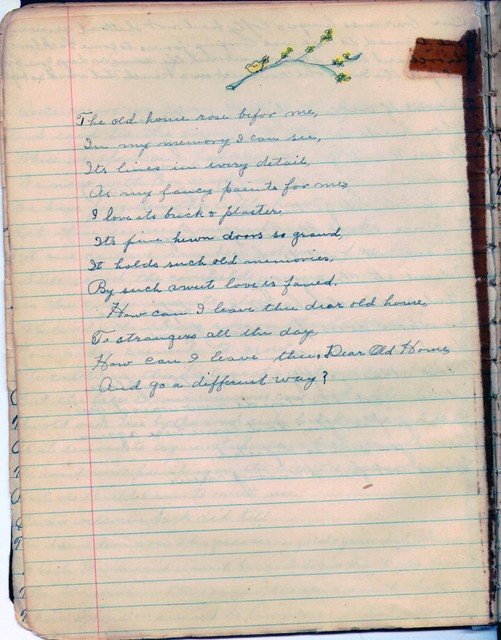 The old home rose befor me,
In my memory I can see,
Its lines in every detail,
As my fancy paints for me
I love its brick & plaster,
Its pine hewn doors so grand,
It holds such old memories,
By such sweet love is fanned.
How can I leave the dear old house,
To strangers all the day,
How can I leave thee, Dear Old Home,
And go a different way?